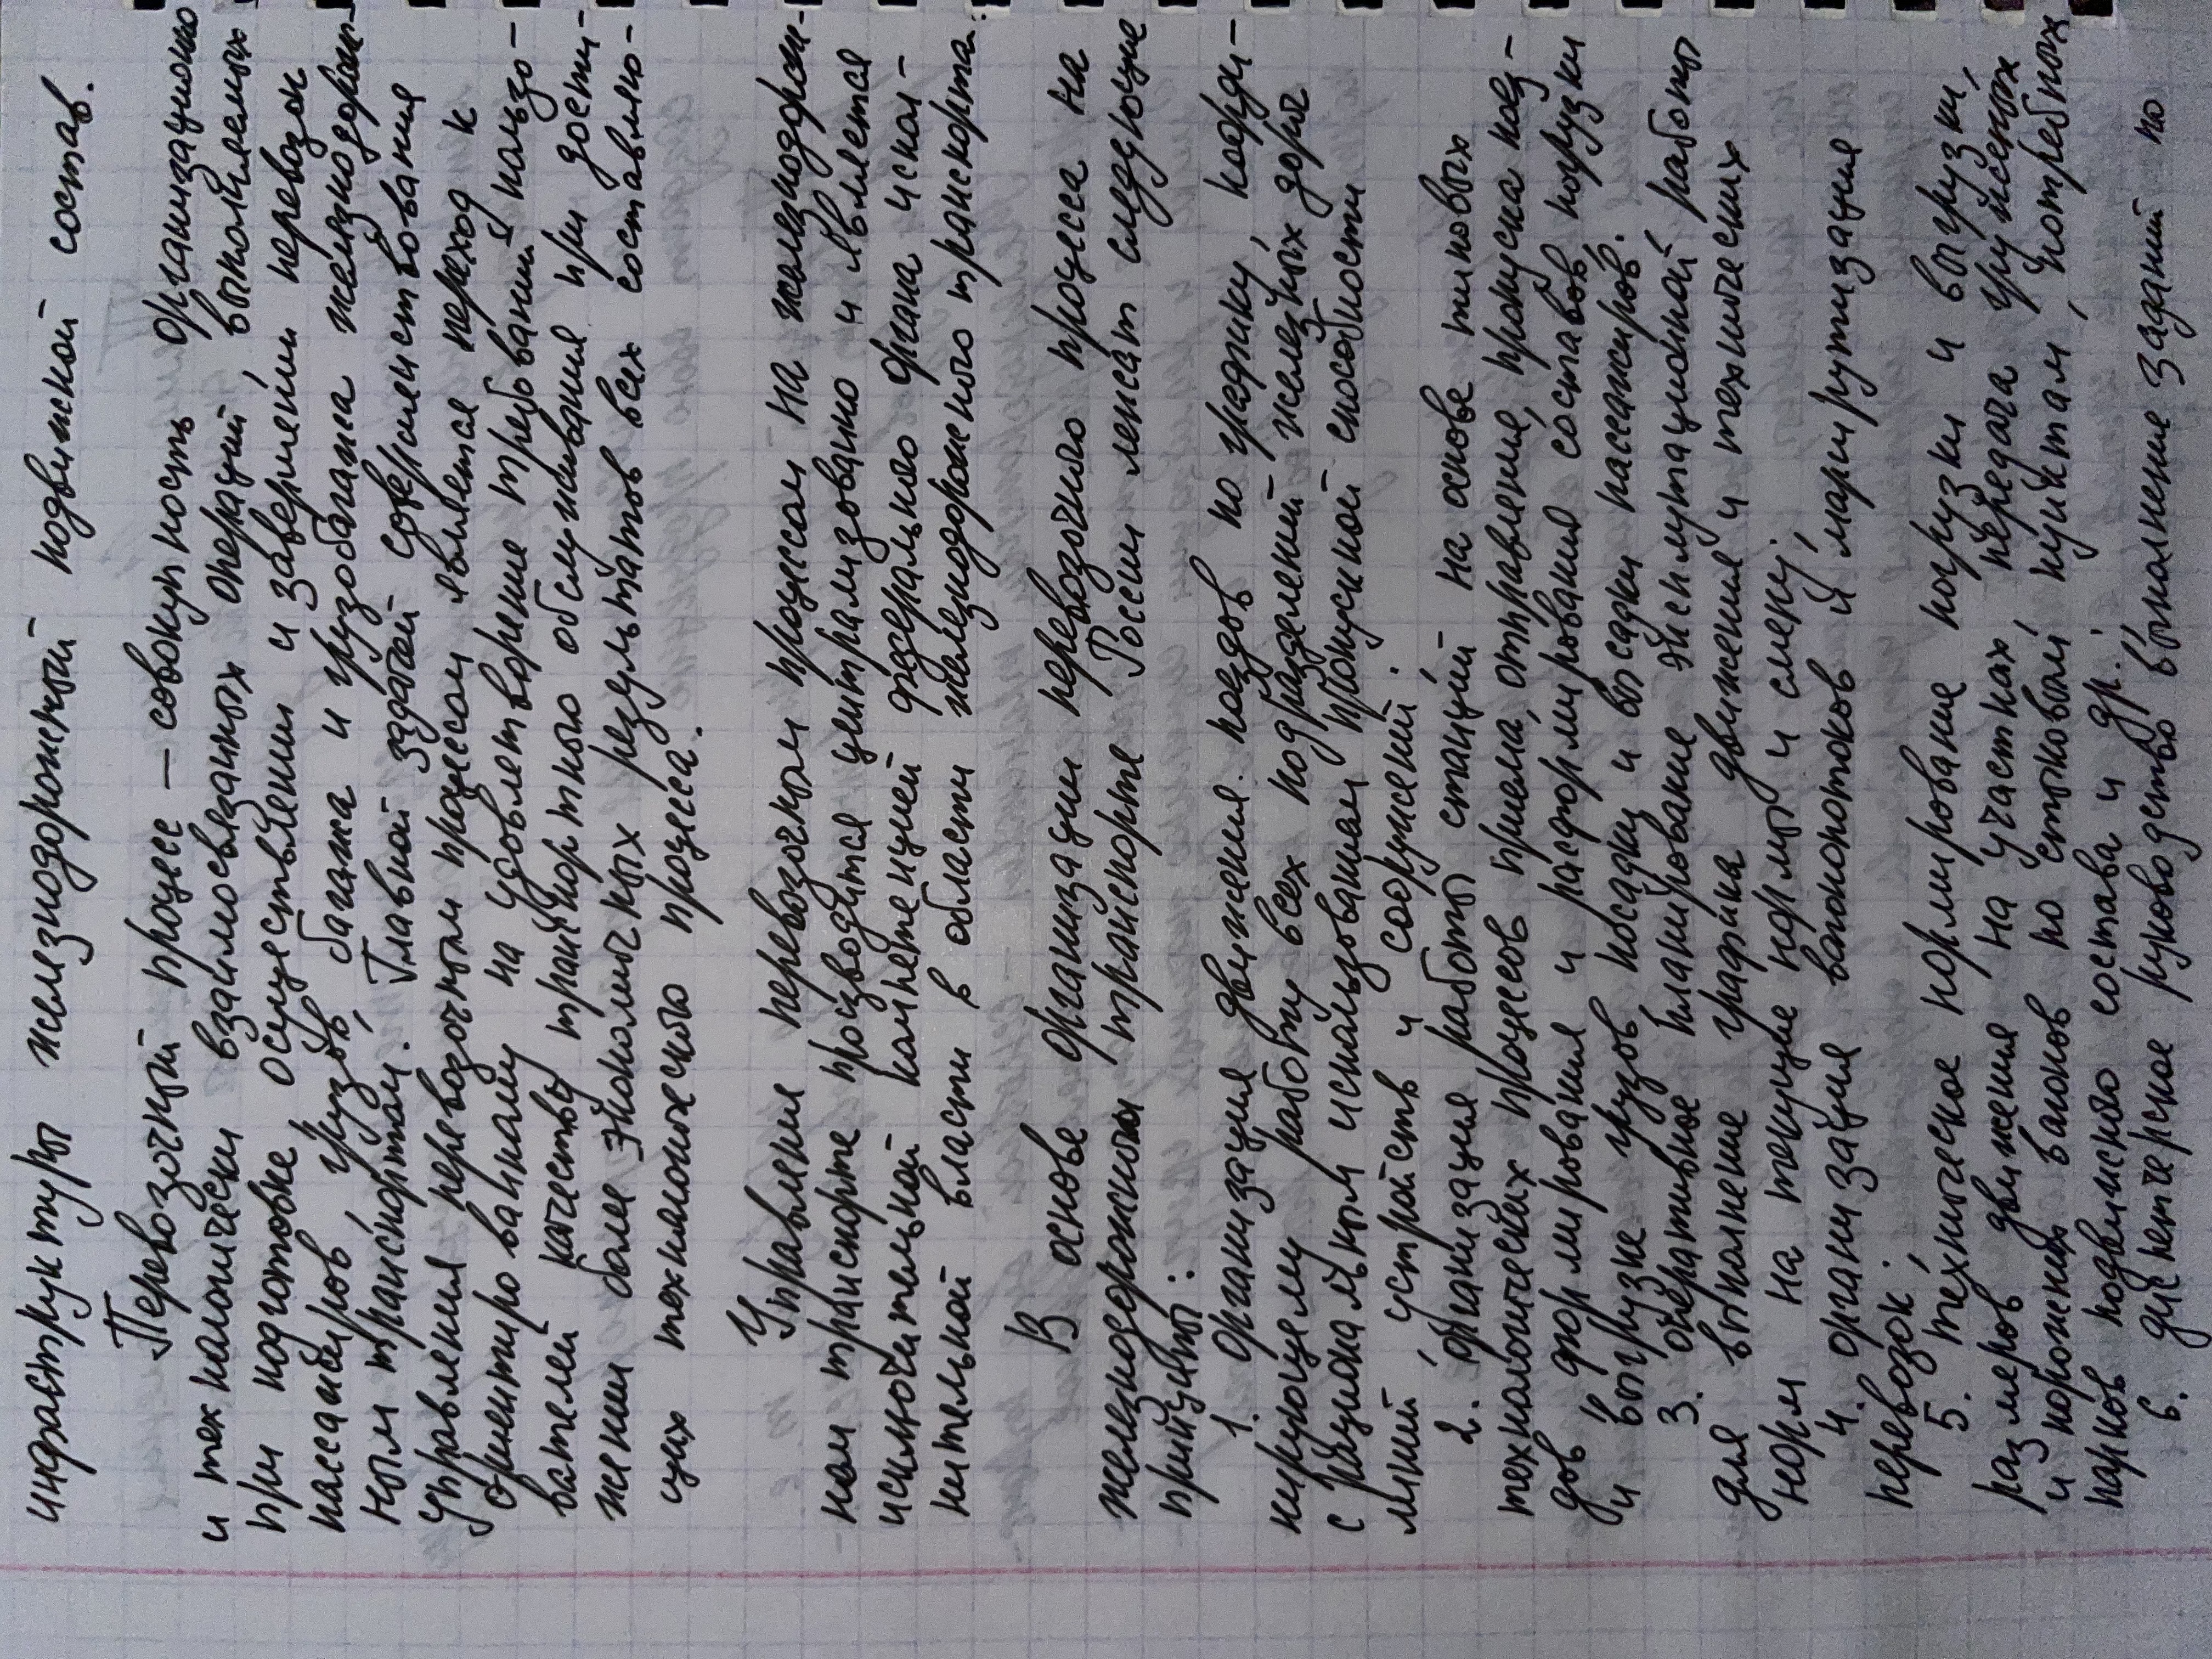 инфраструктуры железнодорожный подвижной состав.
Перевозочный процесс – совокупность организационно
и технологически взаимосвязанных операций, выполняемых
при подготовке, осуществлении и завершении перевозок
пассажиров, грузов, багажа и грузобагажа железнодорож-
ным транспортом. Главной задачей совершенствования
управления перевозочным процессом является переход к
ориентированному на удовлетворение требований пользо-
вателей качеству транспортного обслуживания при дости-
жении более экономичных результатов всех составляю-
щих технологического процесса.
Управление перевозочным процессом на железнодорож-
ном транспорте производится централизованно и является
исключительной компетенцией федерального органа испол-
нительной власти в области железнодорожного транспорта.
В основе организации перевозочного процесса на
железнодорожном транспорте России лежат следующие
принципы:
1. организация движения поездов по графику, коорди-
нирующему работу всех подразделений железных дорог
с рациональным использованием пропускной способности
линий, устройств и сооружений.
2. организация работы станций на основе типовых
технологических процессов приема, отправление, пропуска поез-
дов, формирования и расформирования составов, погрузки
и выгрузке грузов посадки и высадки пассажиров.
3. оперативное планирование эксплуатационной работы
для выполнение графика движения и технических
норм на текущие нормы и смену;
4. организация вагонопотоков и маршрутизация
перевозок;
5. техническое нормирование погрузки и выгрузки,
размеров движения на участках, передача груженых
и порожних вагонов по стыковым пунктам, потребных
парков подвижного состава и др.;
6. диспетчерское руководство выполнение заданий по